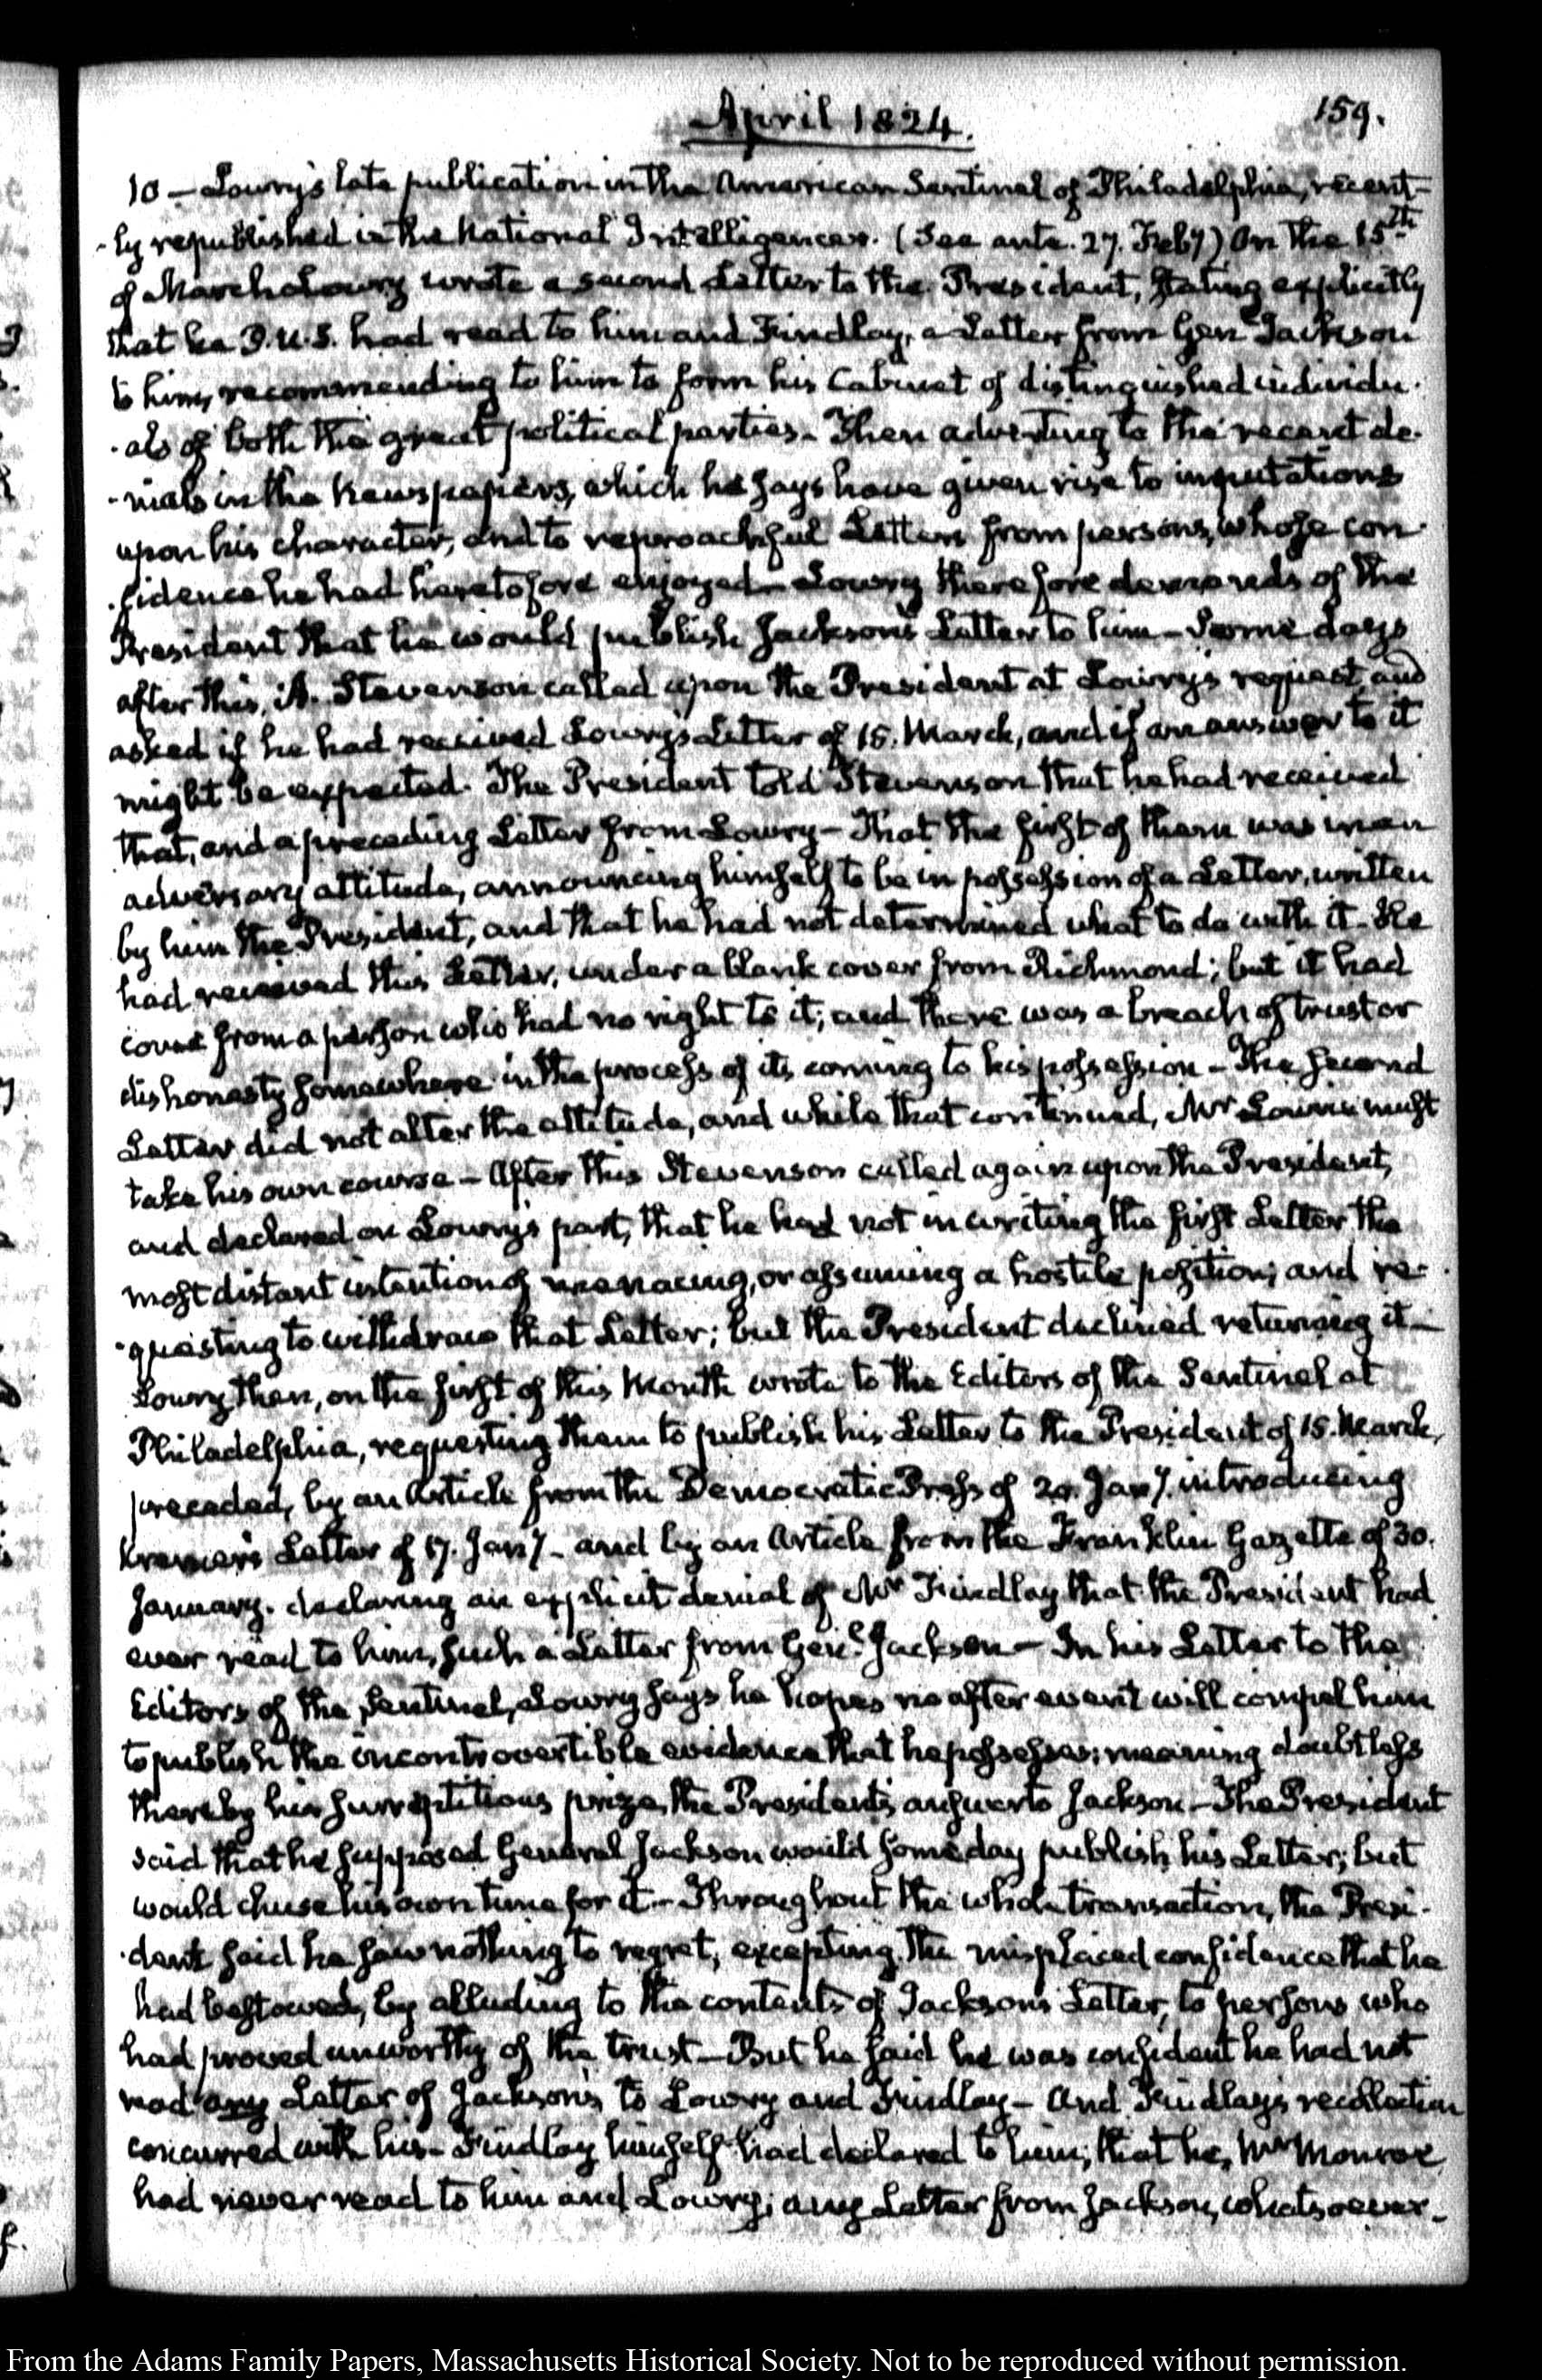 April 1824.
159.
10 — Lowry's late publication in the American Sentinel of Philadelphia, recent-
-ly republished in the National Intelligencer. (See ante. 27. Feby) On the 15th
of March Lowry wrote a second Letter to the President, stating explicitly
that he P.U.S. had read to him and Findlay, a Letter from Genl Jackson
to him, recommending to him to form his Cabinet of distinguished individu-
-als of both the great political parties. Then adverting to the recent de-
-nials in the Newspapers, which he says have given rise to imputations
upon his character, and to reproachful Letters from persons, whose con-
-fidence he had heretofore enjoyed— Lowry therefore demands of the
President that he would publish Jackson's Letter to him— Some days
after this, A. Stevenson called upon the President at Lowry's request, and
asked if he had received Lowry's Letter of 15. March, and if an answer to it
might be expected. The President told Stevenson that he had received
that, and a preceding Letter from Lowry— That the first of them was in an
adversary attitude, announcing himself to be in possession of a Letter, written
by him the President, and that he had not determined what to do with it. He
had received this Letter, under a blank cover from Richmond; but it had
come from a person who had no right to it; and there was a breach of trust or
dishonesty somewhere in the process of its coming to his possession— The second
Letter did not alter the attitude, and while that continued, Mr Lowrie must
take his own course— After this Stevenson called again upon the President,
and declared on Lowry's part, that he had not in writing the first Letter the
most distant intention of menacing, or assuming a hostile position; and re-
-questing to withdraw that Letter; but the President declined returning it—
Lowry then, on the first of this Month wrote to the Editors of the Sentinel at
Philadelphia, requesting them to publish his Letter to the President of 15. March,
preceded, by an Article from the Democratic Press of Jany. introducing
Kremer's Letter of 17. Jany— and by an Article from the Franklin Gazette of 30.
January. declaring an explicit denial of Mr Findlay that the President had
ever read to him, such a Letter from Genl. Jackson— In his Letter to the
Editors of the Sentinel, Lowry says he hopes no after event will compel him
to publish the incontrovertible evidence that he possesses; meaning doubtless
thereby his surreptitious prize, the President's answer to Jackson— The President
said that he supposed General Jackson would some day publish his Letter; but
would chuse his own time for it— Throughout the whole transaction, the Presi-
-dent said he saw nothing to regret, excepting the misplaced confidence that he
had bestowed, by alluding to the contents of Jackson's Letter, to persons who
had proved unworthy of the trust— But he said he was confident he had not
read any Letter of Jackson's to Lowry and Findlay— And Findlay's recollection
concurred with his— Findlay himself had declared to him, that he, Mr Monroe
had never read to him and Lowry, any Letter from Jackson, whatsoever—
From the Adams Family Papers, Massachusetts Historical Society. Not to be reproduced without permission.